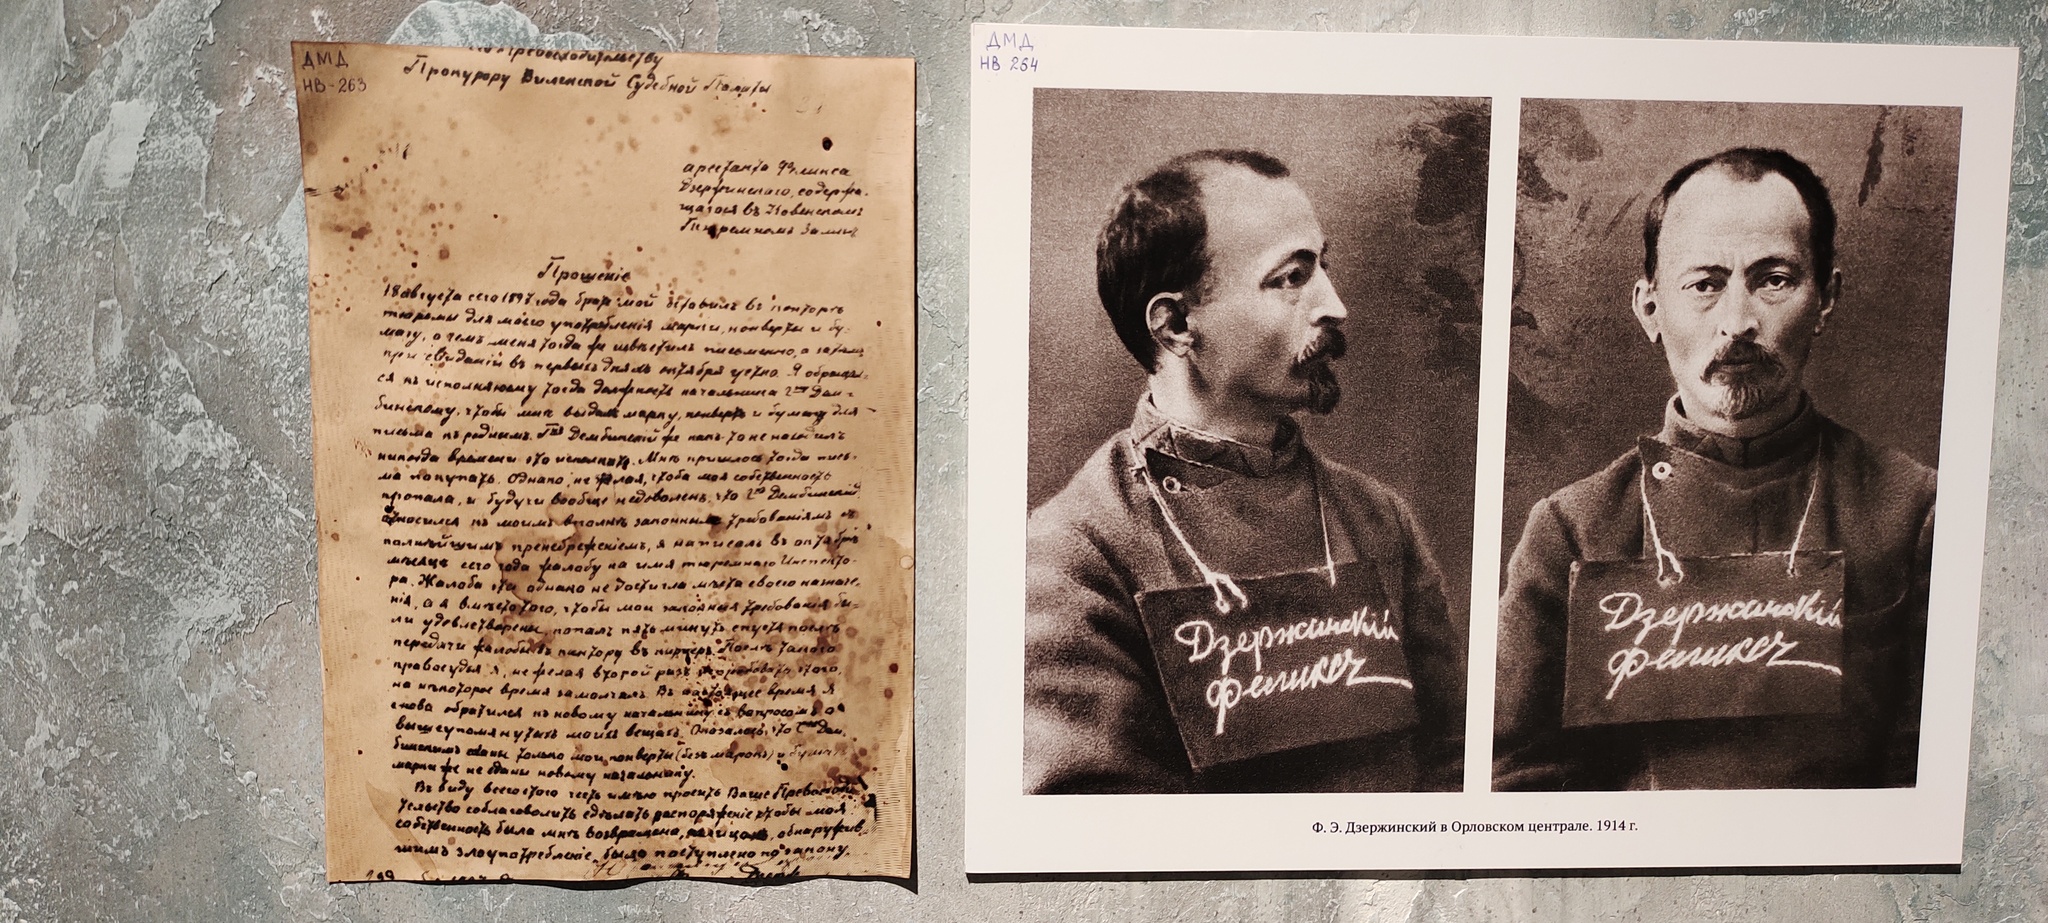 ДМД
НВ-263
Прокурору Виленской Судебной Палаты
арестанта Феликса
Дзержинскаго, содержа-
щагося въ Ковенскомъ
Тюремномъ Замкѣ
Прошеніе
18 августа сего 1897 года братъ мой оставилъ въ конторѣ
тюрьмы для моего употребленія марки, конверты и бу-
магу, о чемъ меня тогда же извѣстилъ письменно, а затѣмъ
при свиданіи въ первыхъ дняхъ октября устно. Я обращал-
ся къ исполняющему тогда должность начальника Гну Дем-
бинскому, чтобы мнѣ выдалъ марку, конвертъ и бумагу для
письма къ роднымъ. Гнъ Дембинскій же какъ-то не находилъ
никогда времени это исполнить. Мнѣ пришлось тогда пись-
ма покупать. Однако, не желая, чтобы моя собственность
пропала, и будучи вообще недоволенъ, что Гнъ Дембинскій
относился къ моимъ вполнѣ законнымъ требованіямъ съ
полнѣйшимъ пренебреженіемъ, я написалъ въ октябрѣ
мѣсяцѣ сего года жалобу на имя тюремнаго Инспекто-
ра. Жалоба эта однако не достигла мѣста своего назначе-
нія, а я вмѣсто того, чтобы мои законныя требованія бы-
ли удовлетворены, попалъ пять минутъ спустя послѣ
передачи жалобы въ контору въ карцеръ. Послѣ такого
правосудья я, не желая второй разъ этого,
на нѣкоторое время замолчалъ. Въ настоящее время я
снова обратился къ новому начальнику съ вопросомъ о
вышеупомянутыхъ моихъ вещахъ. Оказалось, что Гнъ Дем-
бинскимъ сданы только мои конверты (безъ марокъ) и бумага
марки же не сданы новому начальнику.
Въ виду всего этого честь имѣю просить Ваше Превосходи-
тельство соблаговолить сдѣлать распоряженіе чтобы моя
собственность была мнѣ возвращена, обнаружив-
шимъ злоупотребленіе, было поступлено по закону.
ДМД
НВ 264
Дзержинскій
Феликсъ
Дзержинскій
Феликсъ
Ф. Э. Дзержинский в Орловском централе. 1914 г.